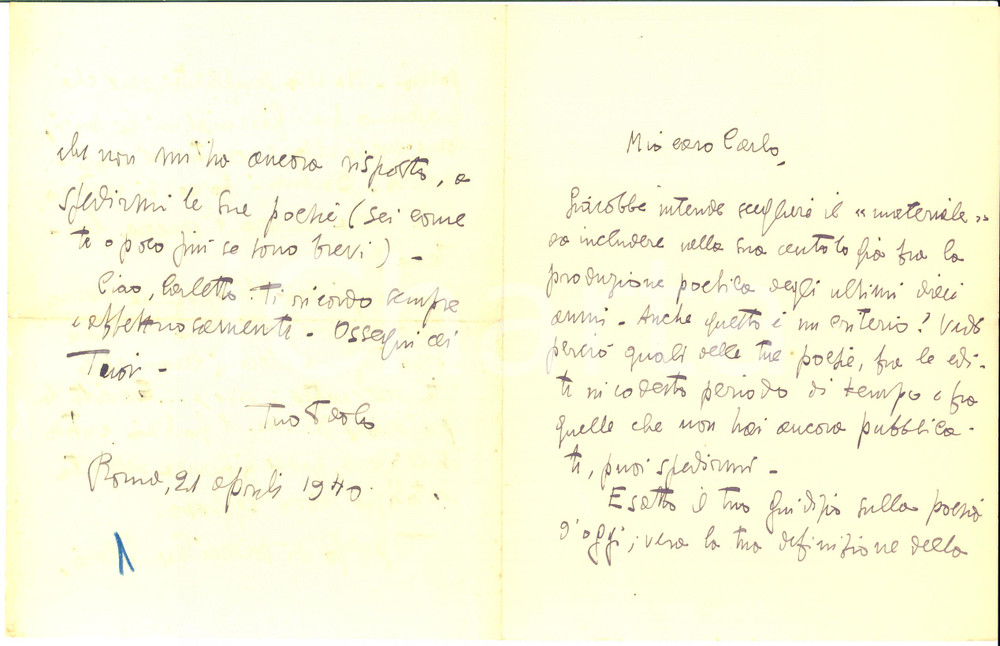 Mio caro Carlo,
Giacobbe intende scegliere il "materiale"
da includere nella sua antologia fra la
produzione poetica degli ultimi dieci
anni - Anche questo è un criterio! Vedi
perciò quali delle tue poesie, fra le edi-
te in codesto periodo di tempo e fra
quelle che non hai ancora pubblica-
te, puoi spedirmi -
Esatto il tuo giudizio sulla poesia
d'oggi; vera la tua definizione della
che non mi ha ancora risposto, a
spedirmi le sue poesie (sei come
te o poco più se sono brevi) -
Ciao, Carletto. Ti ricordo sempre
affettuosamente - Ossequi ai
Tuoi -
Tuo
Roma, 21 aprile 1940.